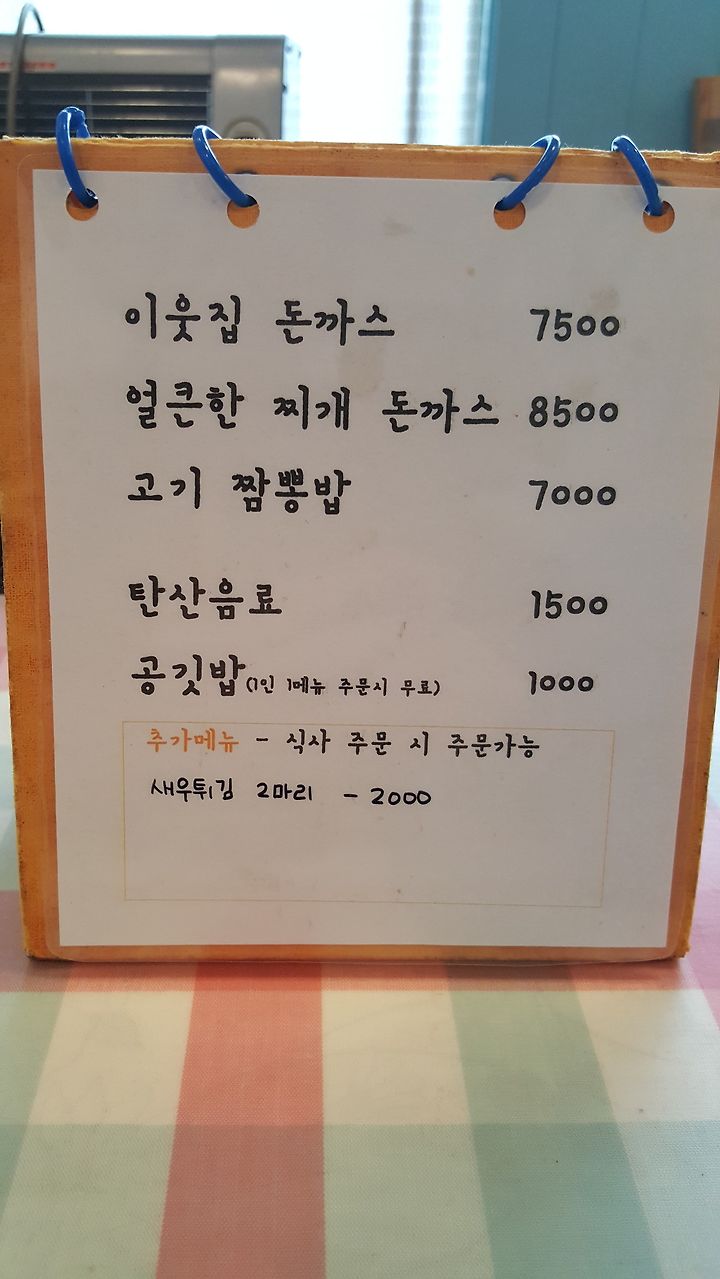 이웃집 돈까스 7500
얼큰한 찌개 돈까스 8500
고기 짬뽕밥 7000
탄산음료 1500
공깃밥(1인 1메뉴 주문시 무료) 1000
추가메뉴 - 식사 주문 시 주문가능
새우튀김 2마리 - 2000